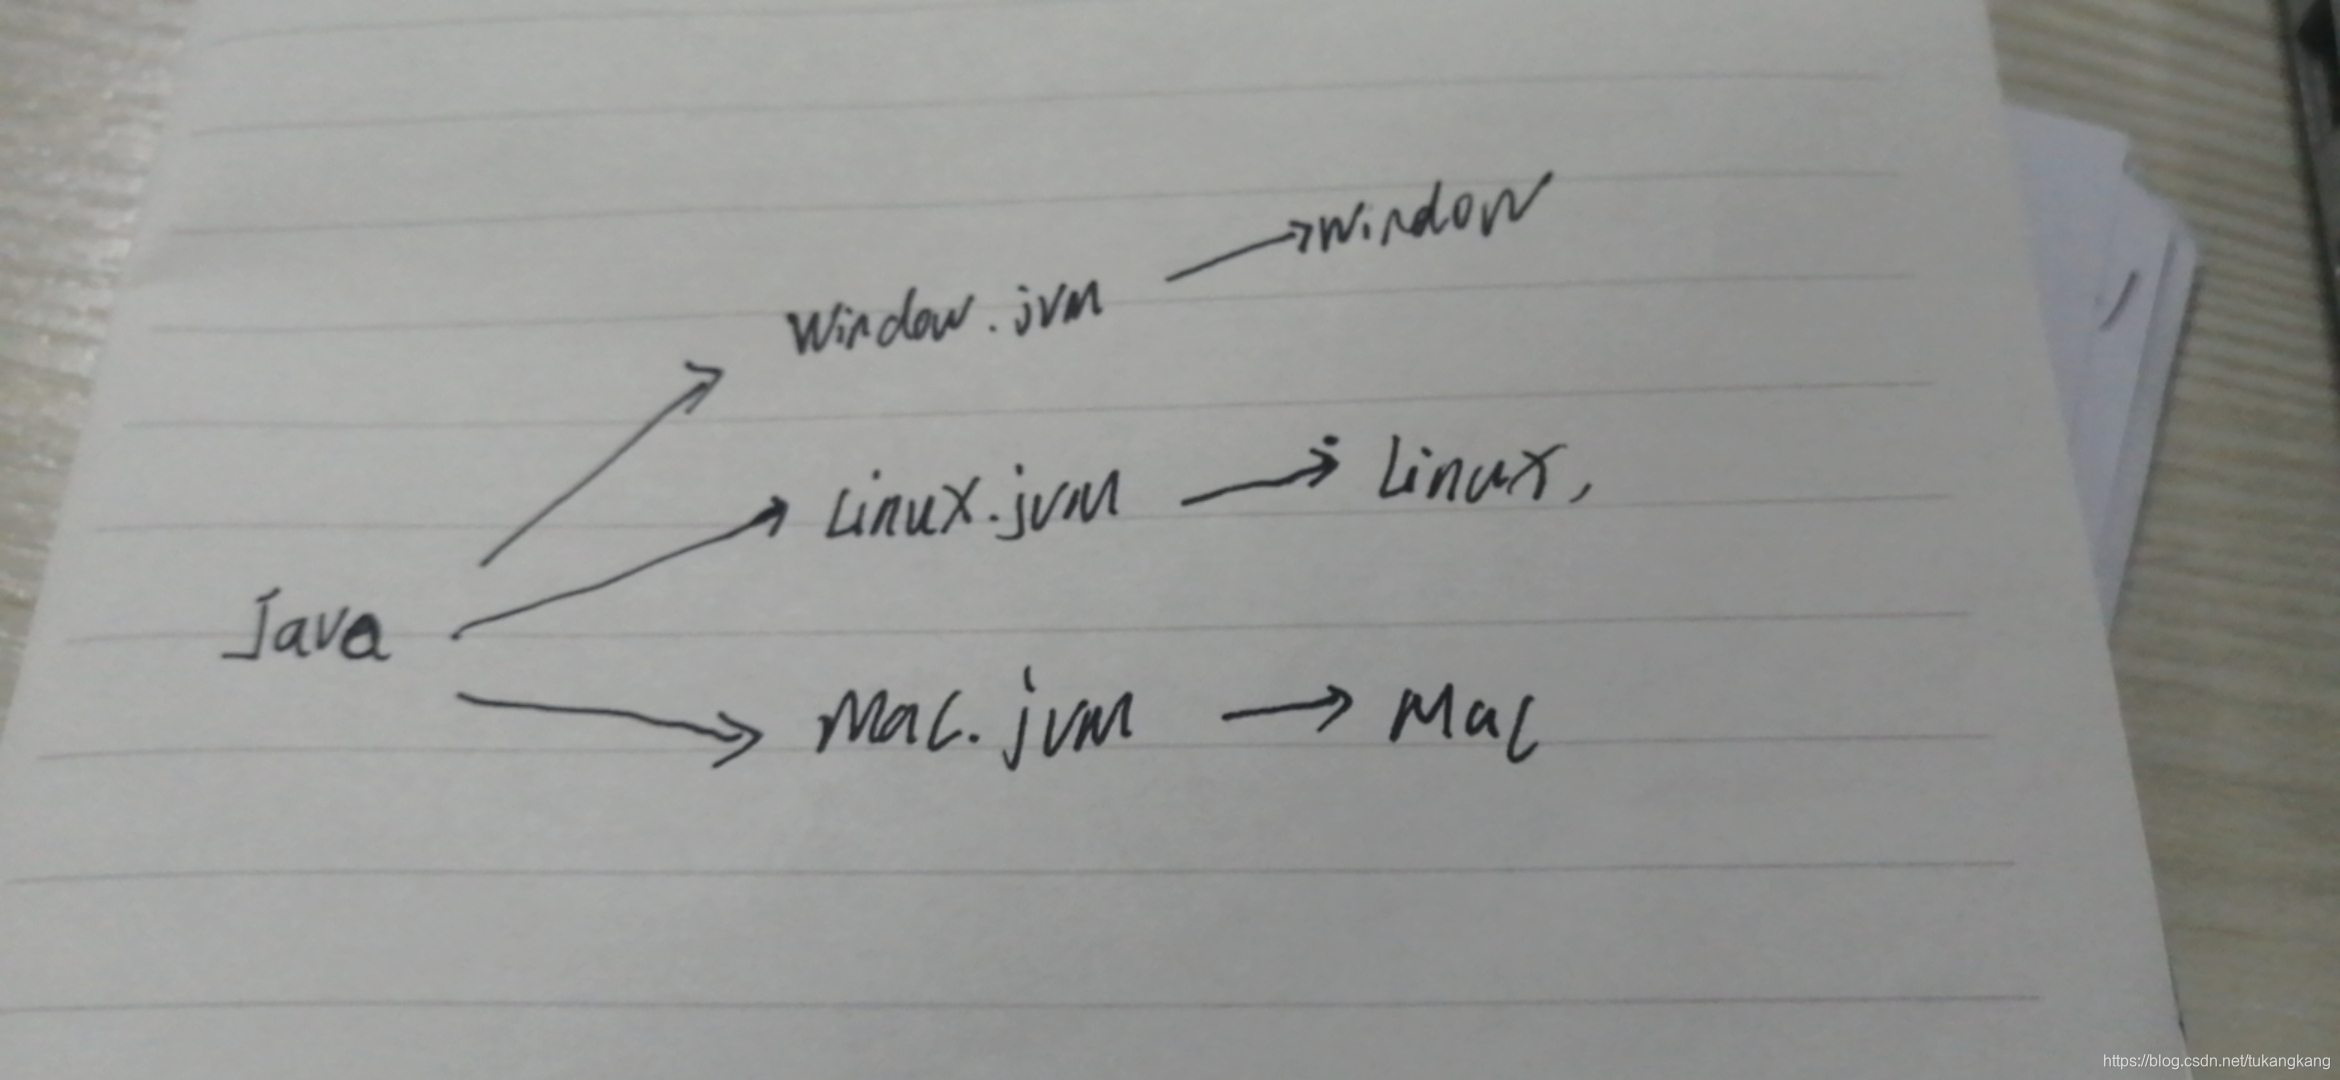 Window
Window.jvm
Linux.jvm
Linux,
Java
Mac.jvm
Mac
https://blog.csdn.net/tukangkang